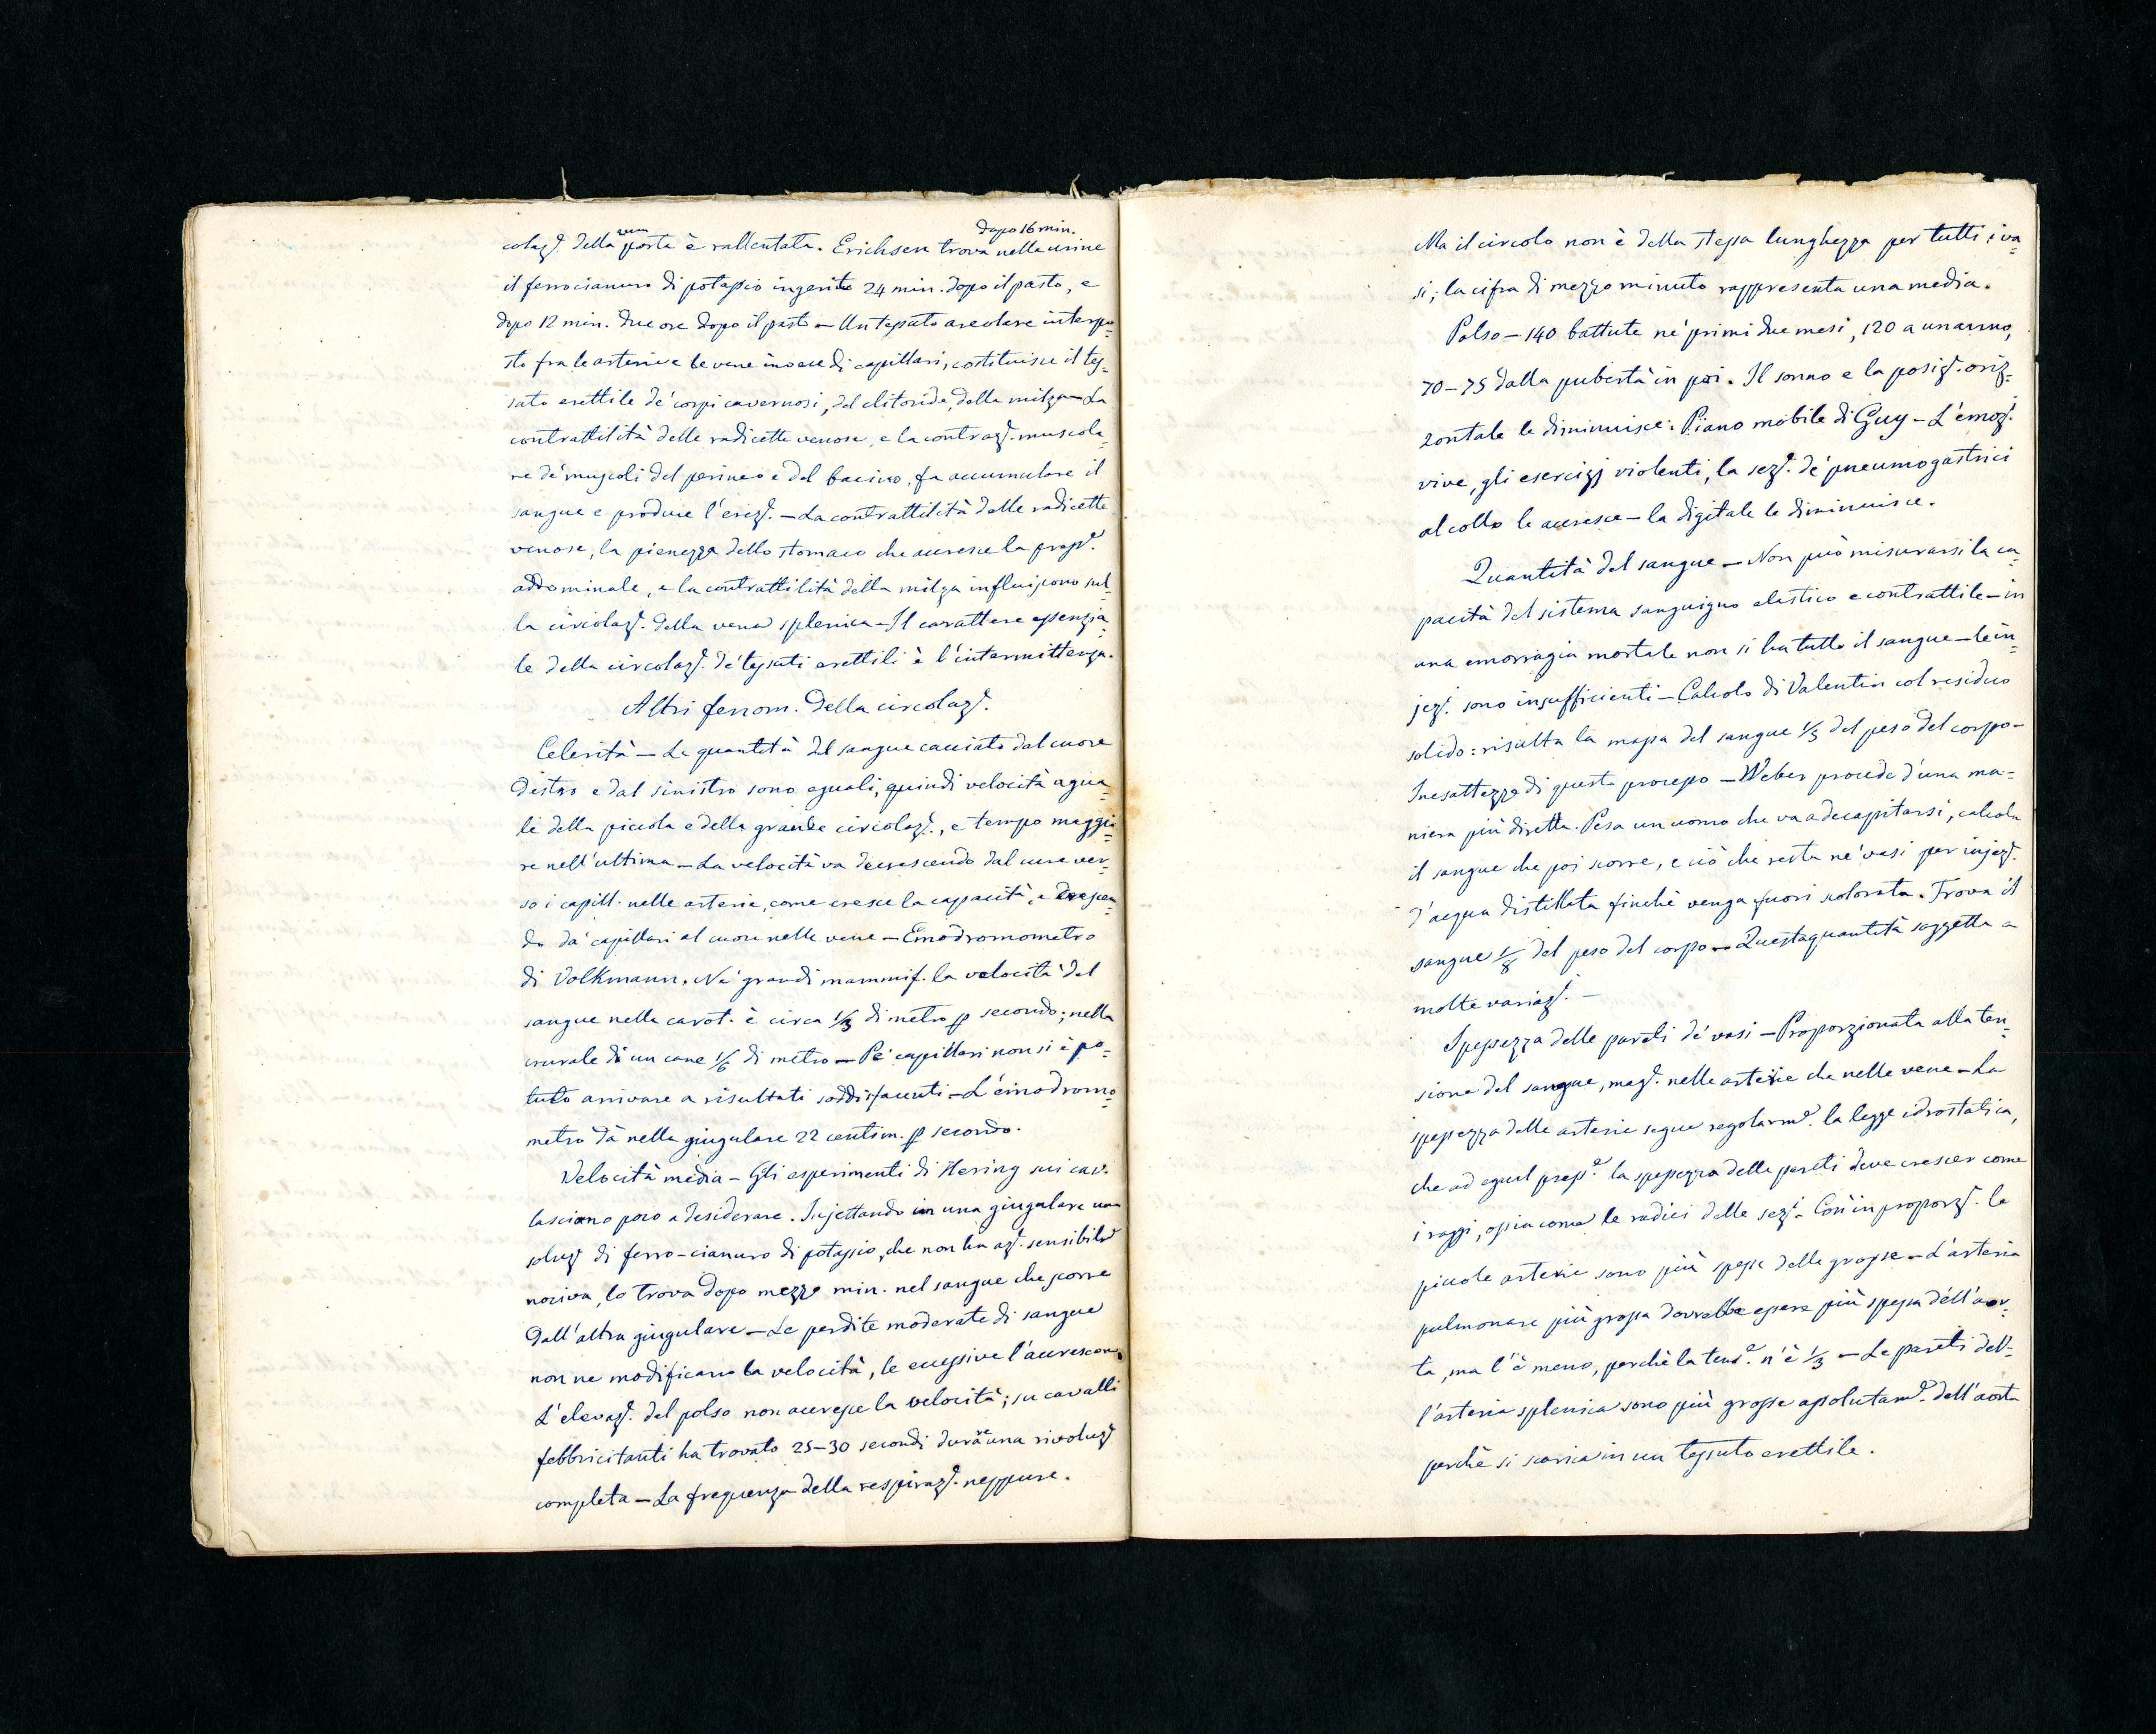 colaz.e della vena porta è rallentata. Erichsen trova nelle urine dopo 16 min.
il ferrocianuro di potassio ingerito 24 min. dopo il pasto, e
dopo 12 min. due ore dopo il pasto — Un tessuto areolare interpo=
sto fra le arterie e le vene invece di capillari, costituisce il tes=
suto erettile de' corpi cavernosi, del clitoride, della milza — La
contrattilità delle radicette venose, e la contraz.e muscola=
re de' muscoli del perineo e del bacino, fa accumulare il
sangue e produce l'erez.e — La contrattilità delle radicette
venose, la pienezza dello stomaco che accresce la press.e
addominale, e la contrattilità della milza influiscono sul=
la circolaz.e della vena splenica — Il carattere essenzia=
le della circolaz.e de' tessuti erettili è l'intermittenza.
Altri fenom. della circolaz.e
Celerità — Le quantità del sangue cacciato dal cuore
destro e dal sinistro sono eguali, quindi velocità egua=
le della piccola e della grande circolaz.e, e tempo maggio=
re nell'ultima — La velocità va decrescendo dal cuore ver=
so i capill. nelle arterie, come cresce la capacità, e crescen=
do da' capillari al cuore nelle vene — Emodromometro
di Volkmann. Ne' grandi mammif. la velocità del
sangue nella carot. è circa 1/3 di metro p secondo; nella
crurale di un cane 1/6 di metro — Pe' capillari non si è po=
tuto arrivare a risultati soddisfacenti — L'emodromo=
metro dà nella giugulare 22 centim. p secondo.
Velocità media — Gli esperimenti di Hering sui cav.
lasciano poco a desiderare. Injettando in una giugulare una
soluz.e di ferro-cianuro di potassio, che non ha az.e sensibile
nociva, lo trova dopo mezzo min. nel sangue che scorre
dall'altra giugulare — Le perdite moderate di sangue
non ne modificano la velocità, le eccessive l'accrescono.
L'elevaz.e del polso non accresce la velocità; su cavalli
febbricitanti ha trovato 25–30 secondi durare una rivoluz.e
completa — La frequenza della respiraz.e neppure.
Ma il circolo non è della stessa lunghezza per tutti i va=
si; la cifra di mezzo minuto rappresenta una media.
Polso — 140 battute ne' primi due mesi, 120 a un anno,
70–75 dalla pubertà in poi. Il sonno e la posiz.e oriz=
zontale le diminuisce: Piano mobile di Guy — L'emoz.i
vive, gli esercizj violenti, la sez.e de' pneumogastrici
al collo le accresce — la digitale le diminuisce.
Quantità del sangue — Non può misurarsi la ca=
pacità del sistema sanguigno elastico e contrattile — in
una emorragia mortale non si ha tutto il sangue — le in=
jez.i sono insufficienti — Calcolo di Valentin col residuo
solido: risulta la massa del sangue 1/5 del peso del corpo —
Inesattezza di questo processo — Weber procede d'una ma=
niera più diretta. Pesa un uomo che va a decapitarsi, calcola
il sangue che poi scorre, e ciò che resta ne' vasi per injez.e
d'acqua distillata finchè venga fuori scolorata. Trova il
sangue 1/8 del peso del corpo — Questa quantità soggetta a
molte variaz.i —
Spessezza delle pareti de' vasi — Proporzionata alla ten=
sione del sangue, mag.e nelle arterie che nelle vene — La
spessezza delle arterie segue regolarm.e la legge idrostatica,
che ad egual press.e la spessezza delle pareti deve crescer come
i raggi, ossia come le radici delle sez.i — Così in proporz.e le
piccole arterie sono più spesse delle grosse — L'arteria
pulmonare più grossa dovrebbe essere più spessa dell'aor=
ta, ma l'è meno, perchè la tens.e n'è 1/3 — Le pareti del=
l'arteria splenica sono più grosse assolutam.e dell'aorta
perchè si scarica in un tessuto erettile.